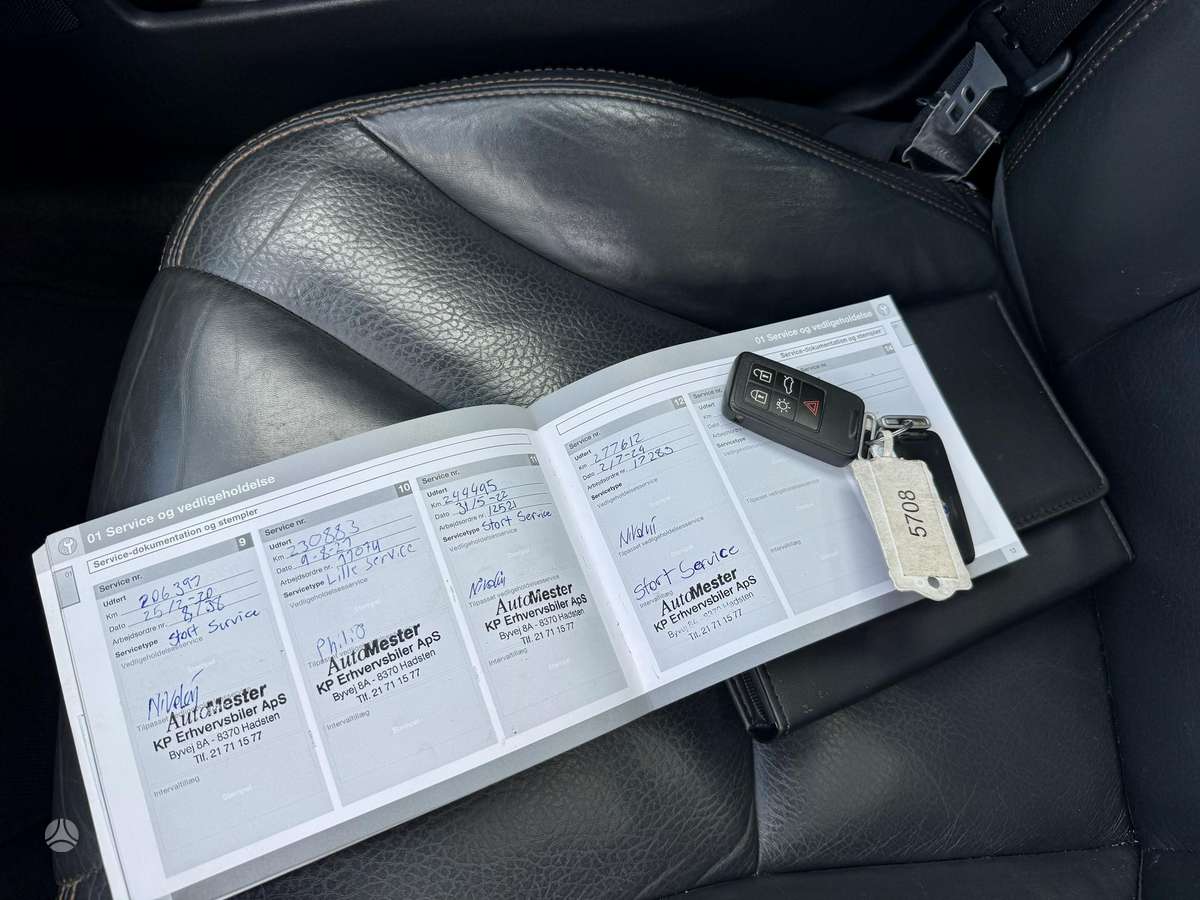 01 Service og vedligeholdelse
Service-dokumentation og stempler
9
Service nr.
Udført
Km 206397
Dato 25/12-20
Arbejdsordre nr. 8/36
Servicetype Stort Service
Vedligeholdelsesservice
Nikolaj
AutoMester
KP Erhvervsbiler ApS
Byvej 8A - 8370 Hadsten
Tlf. 21 71 15 77
Intervaltillæg
Stempel
10
Service nr.
Udført
Km 230883
Dato
Arbejdsordre nr.
Servicetype Lille Service
Vedligeholdelsesservice
AutoMester
KP Erhvervsbiler ApS
Byvej 8A - 8370 Hadsten
Tlf. 21 71 15 77
Intervaltillæg
Stempel
11
Service nr.
Udført
Km 244495
Dato 31/5-22
Arbejdsordre nr. 12521
Servicetype Stort Service
Vedligeholdelsesservice
Nikolaj
Tilpasset vedligeholdelsesservice
AutoMester
KP Erhvervsbiler ApS
Byvej 8A - 8370 Hadsten
Tlf. 21 71 15 77
Intervaltillæg
01 Service og vedligeholdelse
Service-dokumentation og stempler
12
Service nr.
Udført
Km 277612
Dato 2/7-24
Arbejdsordre nr. 17283
Servicetype
Vedligeholdelsesservice
Nikolaj
Tilpasset vedligeholdelsesservice
Stort Service
Intervaltillæg
AutoMester
KP Erhvervsbiler ApS
Byvej 8A - 8370 Hadsten
Tlf. 21 71 15 77
Service nr.
Intervaltillæg
5708